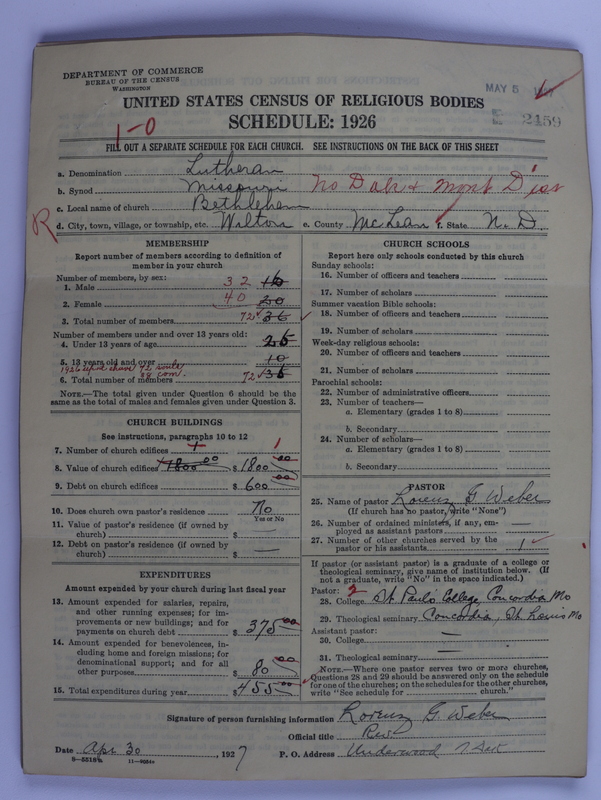 DEPARTMENT OF COMMERCE
BUREAU OF THE CENSUS
WASHINGTON
MAY 5
UNITED STATES CENSUS OF RELIGIOUS BODIES
2459
SCHEDULE: 1926
1-0
FILL OUT A SEPARATE SCHEDULE FOR EACH CHURCH. SEE INSTRUCTIONS ON THE BACK OF THIS SHEET
a. Denomination Lutheran
b. Synod Missouri No Dak & Mont Dist
c. Local name of church Bethlehem
R d. City, town, village, or township, etc. Wilton e. County McLean f. State N. D.
MEMBERSHIP
Report number of members according to definition of
member in your church
Number of members, by sex:
1. Male 32 16
2. Female 40 20
3. Total number of members 72 36
Number of members under and over 13 years old:
4. Under 13 years of age
5. 13 years old and over 10
1926 72 souls
com.
6. Total number of members 72 36
NOTE.—The total given under Question 6 should be
same as the total of males and females given under Question 3.
CHURCH BUILDINGS
See instructions, paragraphs 10 to 12
7. Number of church edifices 1
8. Value of church edifices 1800 00 $ 1800 00
9. Debt on church edifices $ 600 00
10. Does church own pastor's residence No
Yes or No
11. Value of pastor's residence (if owned by
church) $ —
12. Debt on pastor's residence (if owned by
church) $ —
EXPENDITURES
Amount expended by your church during last fiscal year
13. Amount expended for salaries, repairs,
and other running expenses; for im-
provements or new buildings; and for
payments on church debt $ 375 00
14. Amount expended for benevolences, in-
cluding home and foreign missions; for
denominational support; and for all
other purposes $ 80 00
15. Total expenditures during year $ 455 00
CHURCH SCHOOLS
Report here only schools conducted by this church
Sunday schools:
16. Number of officers and teachers
17. Number of scholars
Summer vacation Bible schools:
18. Number of officers and teachers
19. Number of scholars
Week-day religious schools:
20. Number of officers and teachers
21. Number of scholars
Parochial schools:
22. Number of administrative officers
23. Number of teachers—
a. Elementary (grades 1 to 8)
b. Secondary
24. Number of scholars—
a. Elementary (grades 1 to 8)
b. Secondary
PASTOR
25. Name of pastor Lorenz G. Weber
(If church has no pastor, write "None")
26. Number of ordained ministers, if any, em-
ployed as assistant pastors —
27. Number of other churches served by the
pastor or his assistants 1
If pastor (or assistant pastor) is a graduate of a college or
theological seminary, give name of institution below. (If
not a graduate, write "No" in the space indicated.)
Pastor: 2
28. College St Paul's College Concordia Mo
29. Theological seminary Concordia, St Louis Mo
Assistant pastor:
30. College —
31. Theological seminary —
NOTE.—Where one pastor serves two or more churches,
Questions 28 and 29 should be answered only on the schedule
for one of the churches; on the schedules for the other churches,
write "See schedule for church."
Signature of person furnishing information Lorenz G. Weber
Official title Rev
Date Apr 30, 1927 P. O. Address Underwood N Dak